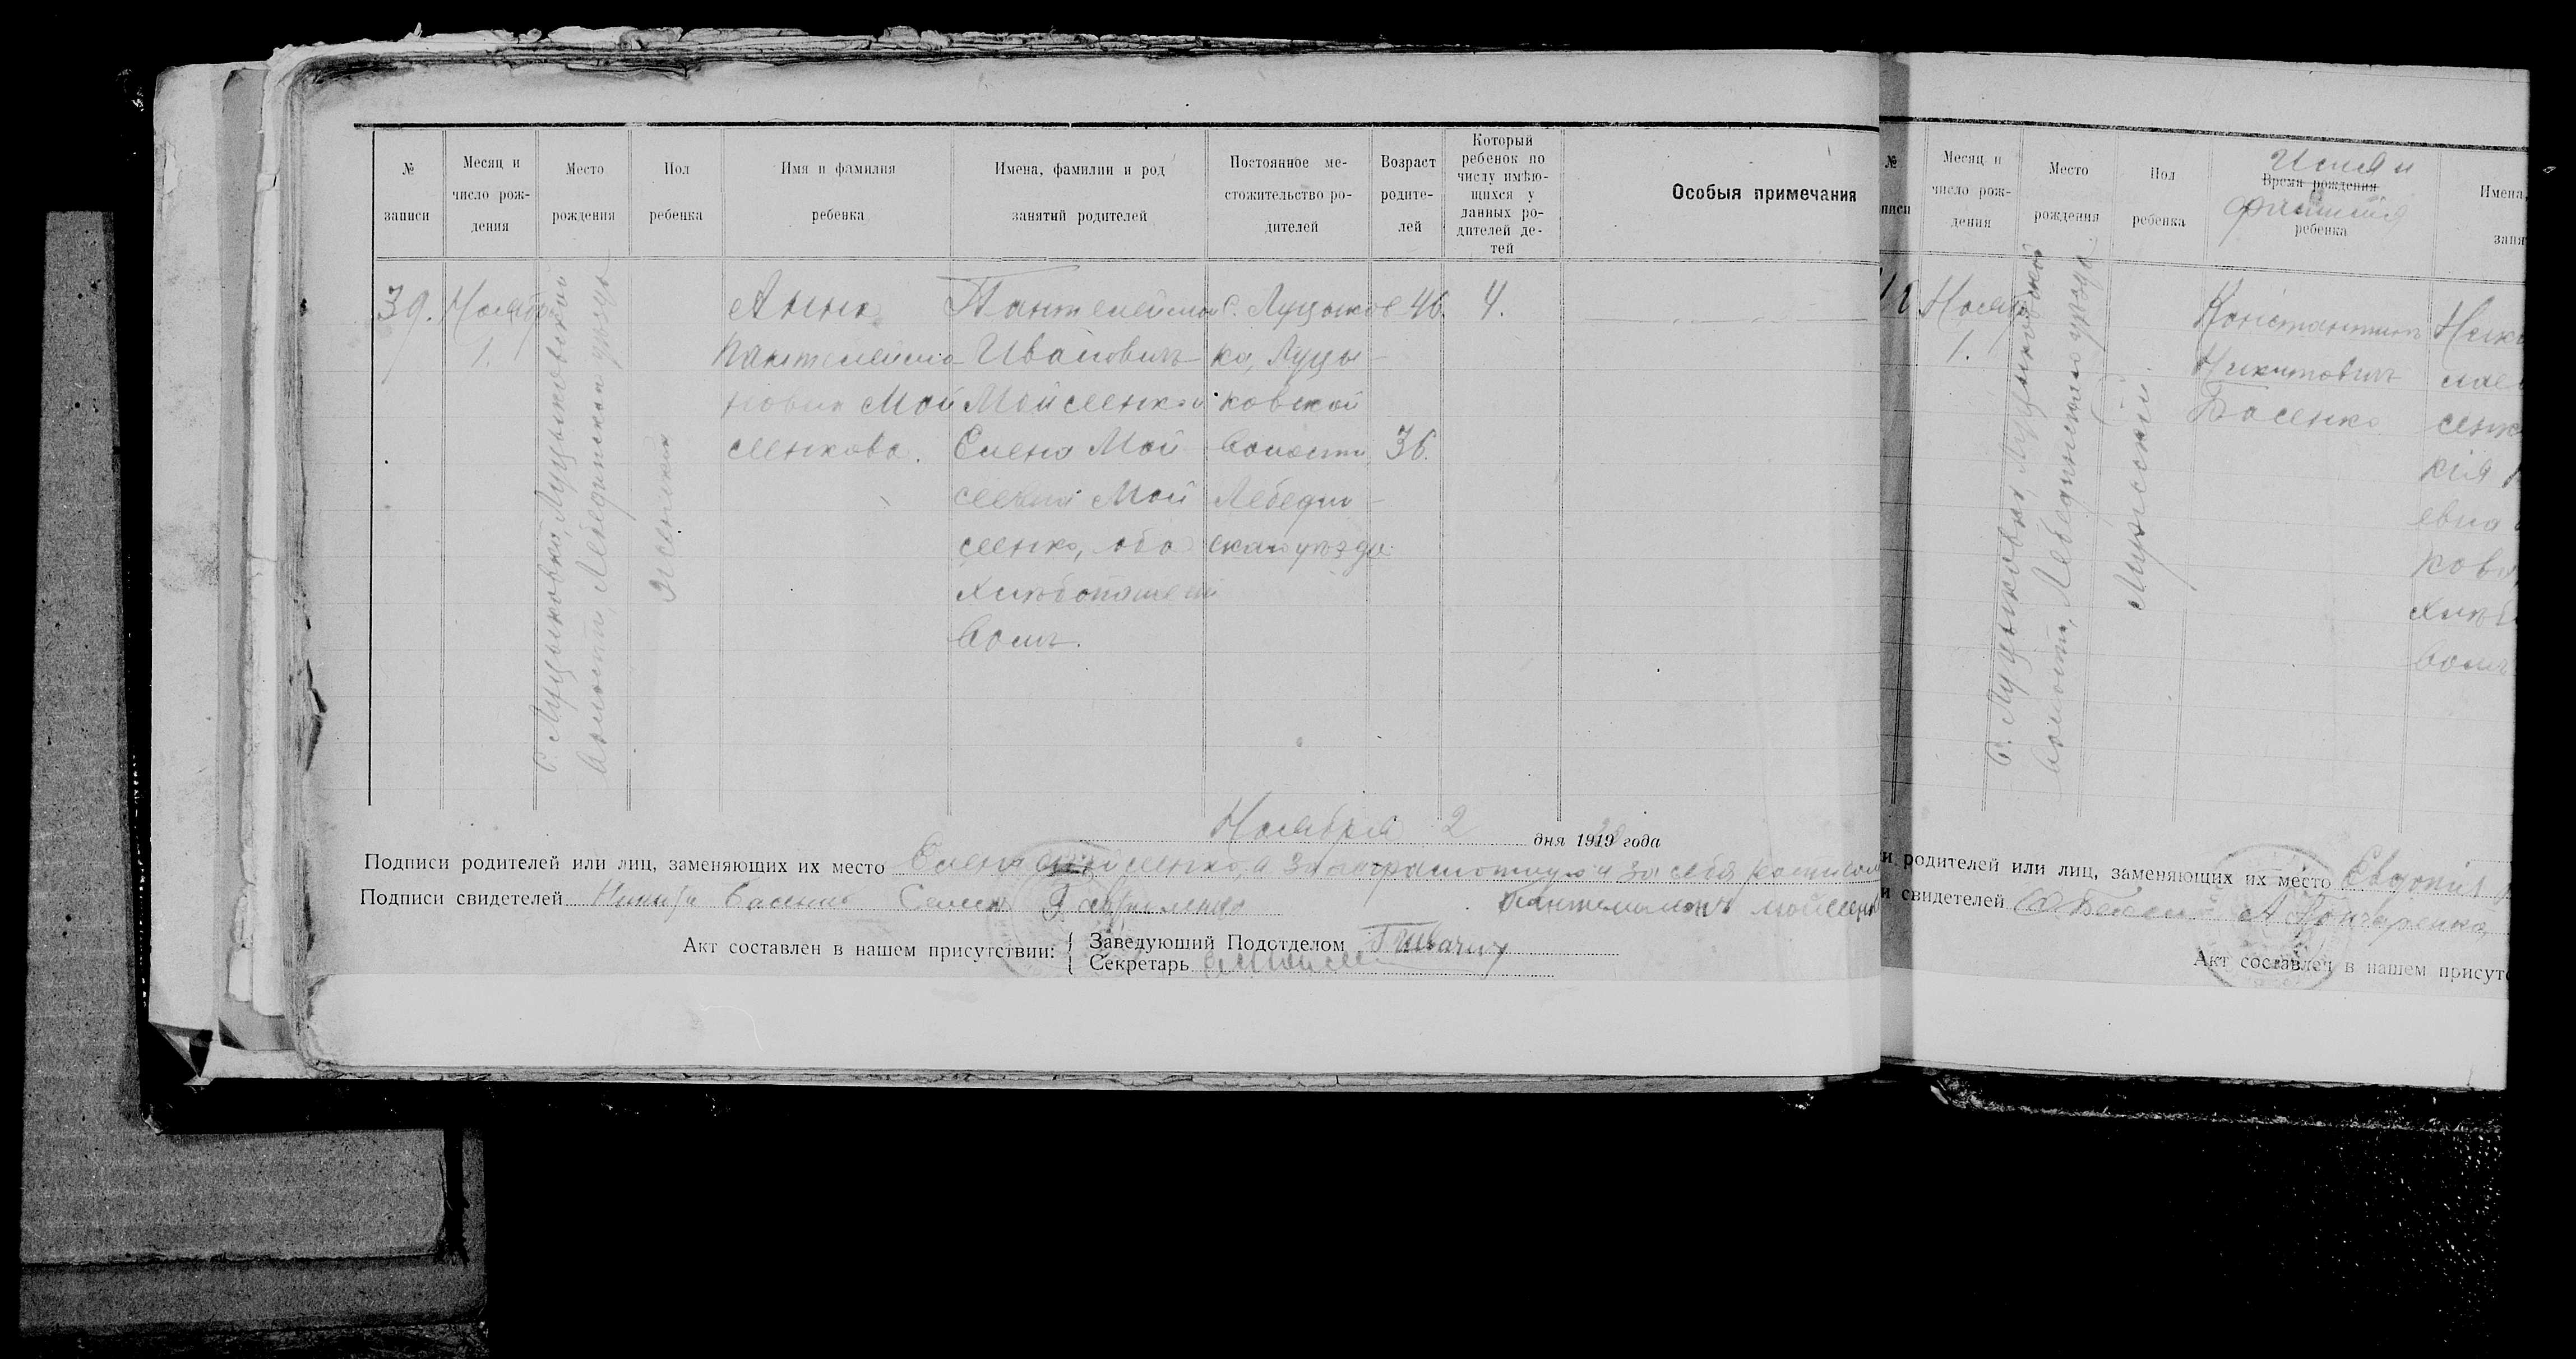 № записи
Месяц и число рождения
Место рождения
Пол ребенка
Имя и фамилия ребенка
Имена, фамилии и род занятий родителей
Постоянное местожительство родителей
Возраст родителей
Который ребенок по числу имѣющихся у данных родителей детей
Особыя примечания
39.
Ноябр
1.
С. Луцыковка, Луцыковской
волости, Лебединскаго уѣзда
Женский
Анна
Пантелеймо
новна Мой
сеенкова.
Пантелеймон
Ивановичъ
Мойсеенко и
Елена Мой
сеевна Мой
сеенко, оба
хлѣбопаше
вомъ.
с. Луцыков
ка, Луцы-
ковской
волости
Лебедин-
скаго уѣзда
46.
36.
4.
Ноября 2 дня 1919 года
Подписи родителей или лиц, заменяющих их место Елена Мойсеенко, а за неграмотную и за себя росписал
Пантелемонъ Мойсеенко
Подписи свидетелей Никита Басенко Семен Гавриленко
Акт составлен в нашем присутствии:
Заведуюший Подотделом
Секретарь
№
Месяц и число рождения
Место рождения
Пол ребенка
Имя и
Время рождения
фамилия
ребенка
Имена,
заня
Ноябр
1.
С. Луцыковка, Луцыковской
волости, Лебединскаго уѣзда.
Мужской.
Константинъ
Никитовичъ
Басенко
Ники
сенк
кія
евна
ков
хлѣб
вомъ
и родителей или лиц, заменяющих их место Евдокия
и свидетелей А Гончаренко
Акт составлен в нашем присутс